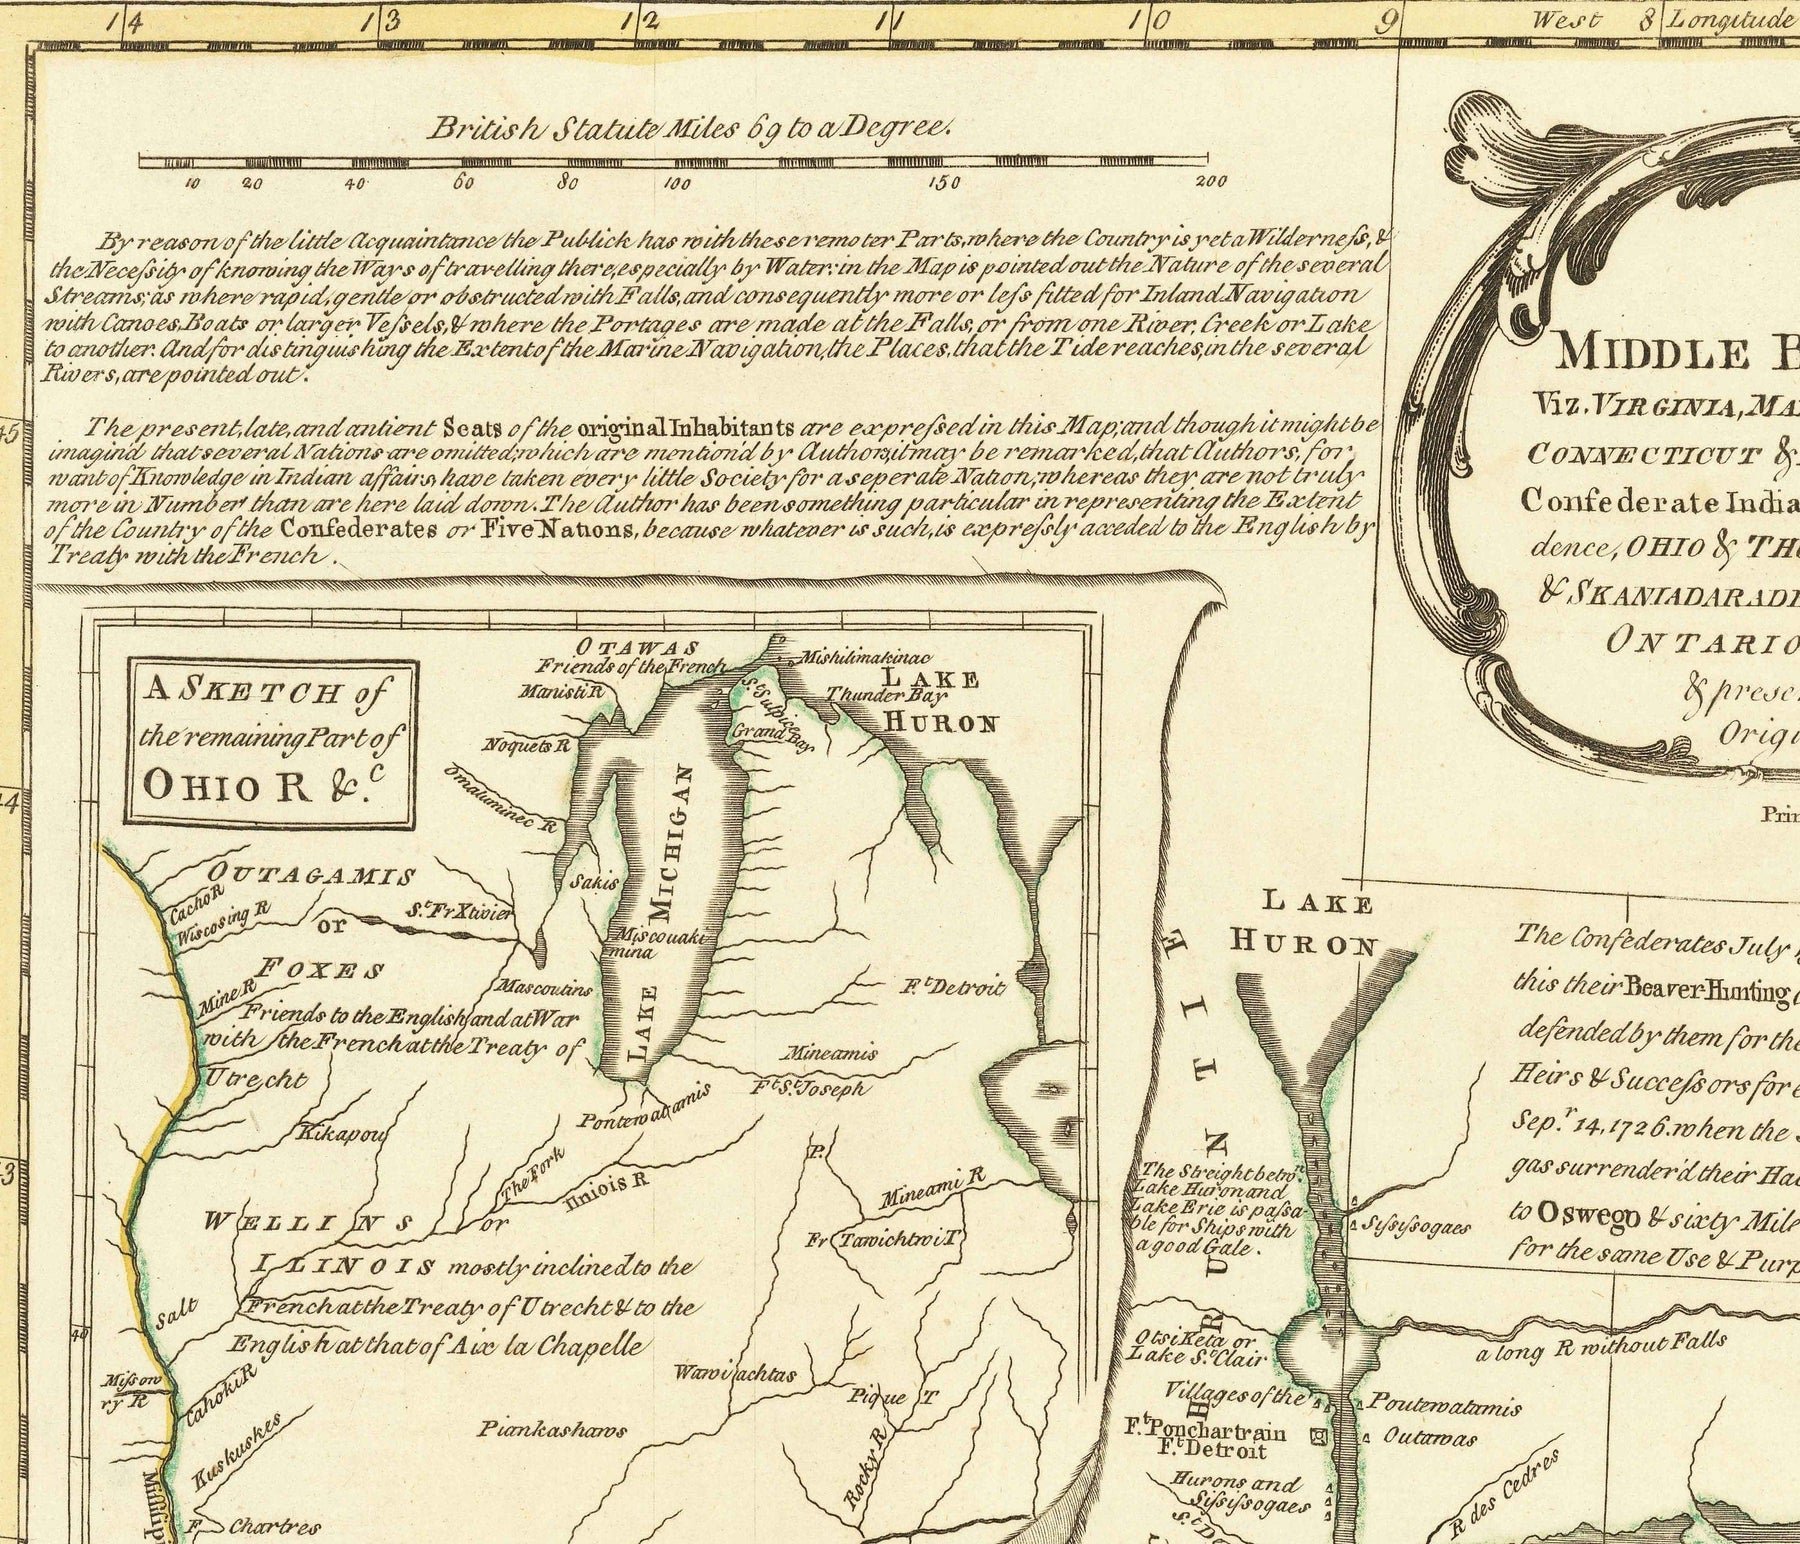 14 13 12 11 10 9 West 8 Longitude
British Statute Miles 69 to a Degree.
10 20 40 60 80 100 150 200
By reason of the little Acquaintance the Publick has with these remoter Parts, where the Country is yet a Wilderneſs, &
the Neceſsity of knowing the Ways of travelling there, especially by Water: in the Map is pointed out the Nature of the several
Streams; as where rapid, gentle or obstructed with Falls, and consequently more or leſs fitted for Inland Navigation
with Canoes, Boats or larger Veſsels, & where the Portages are made at the Falls, or from one River, Creek or Lake
to another. And for distinguishing the Extent of the Marine Navigation, the Places, that the Tide reaches, in the several
Rivers, are pointed out.
The present, late, and antient Seats of the original Inhabitants are expreſsed in this Map; and though it might be
imagin'd that several Nations are omitted; which are mention'd by Authors, it may be remarked, that Authors, for
want of Knowledge in Indian affairs, have taken every little Society for a seperate Nation; whereas they are not truly
more in Number than are here laid down. The Author has been something particular in representing the Extent
of the Country of the Confederates or Five Nations, because whatever is such, is expreſsly acceded to the English by
Treaty with the French.
45
44
43
40
A SKETCH of
the remaining Part of
OHIO R &.c
OTAWAS
Friends of the French
Mishilimakinac
LAKE
HURON
Thunder Bay
Manisti R
St. Sulpice
Grand Bay
Noquets R
Omaluminec R
LAKE MICHIGAN
OUTAGAMIS
Sakis
Cacho R
Wiscosing R
or
St. Fr Xtivier
Miscouaki
mina
FOXES
Mascoutins
Ft. Detroit
Mine R
Friends to the English and at War
with the French at the Treaty of
Utrecht
Mineamis
Ft. St. Joseph
Pontewatamis
Kikapou
The Fork
Iiniois R
P.
Mineami R
WELLINS
or
Fr Tawichtwi T
ILINOIS mostly inclined to the
French at the Treaty of Utrecht & to the
English at that of Aix la Chapelle
Salt
Miſsow
ry R
Cahoki R
Wawiachtas
Pique T
Kuskuskes
Piankashaws
Rocky R
F. Chartres
MIDDLE B
Viz. VIRGINIA, MA
CONNECTICUT &
Confederate India
dence, OHIO & TH
& SKANIADARAD
ONTARIO
& prese
Origi
Prin
LAKE
HURON
The Confederates July
this their Beaver Hunting
defended by them for the
Heirs & Succeſsors for e
Sep.r 14. 1726. when the
gas surrender'd their Ha
to Oswego & sixty Mile
for the same Use & Purp
The Streight betw.n
Lake Huron and
Lake Erie is paſsa-
ble for Ships with
a good Gale.
Siſsiſsogaes
Otsi Keta or
Lake St. Clair
a long R without Falls
Villages of the
Poutewatamis
Ft. Ponchartrain
Ft. Detroit
Outawas
Hurons and
Siſsiſsogaes
R des Cedres